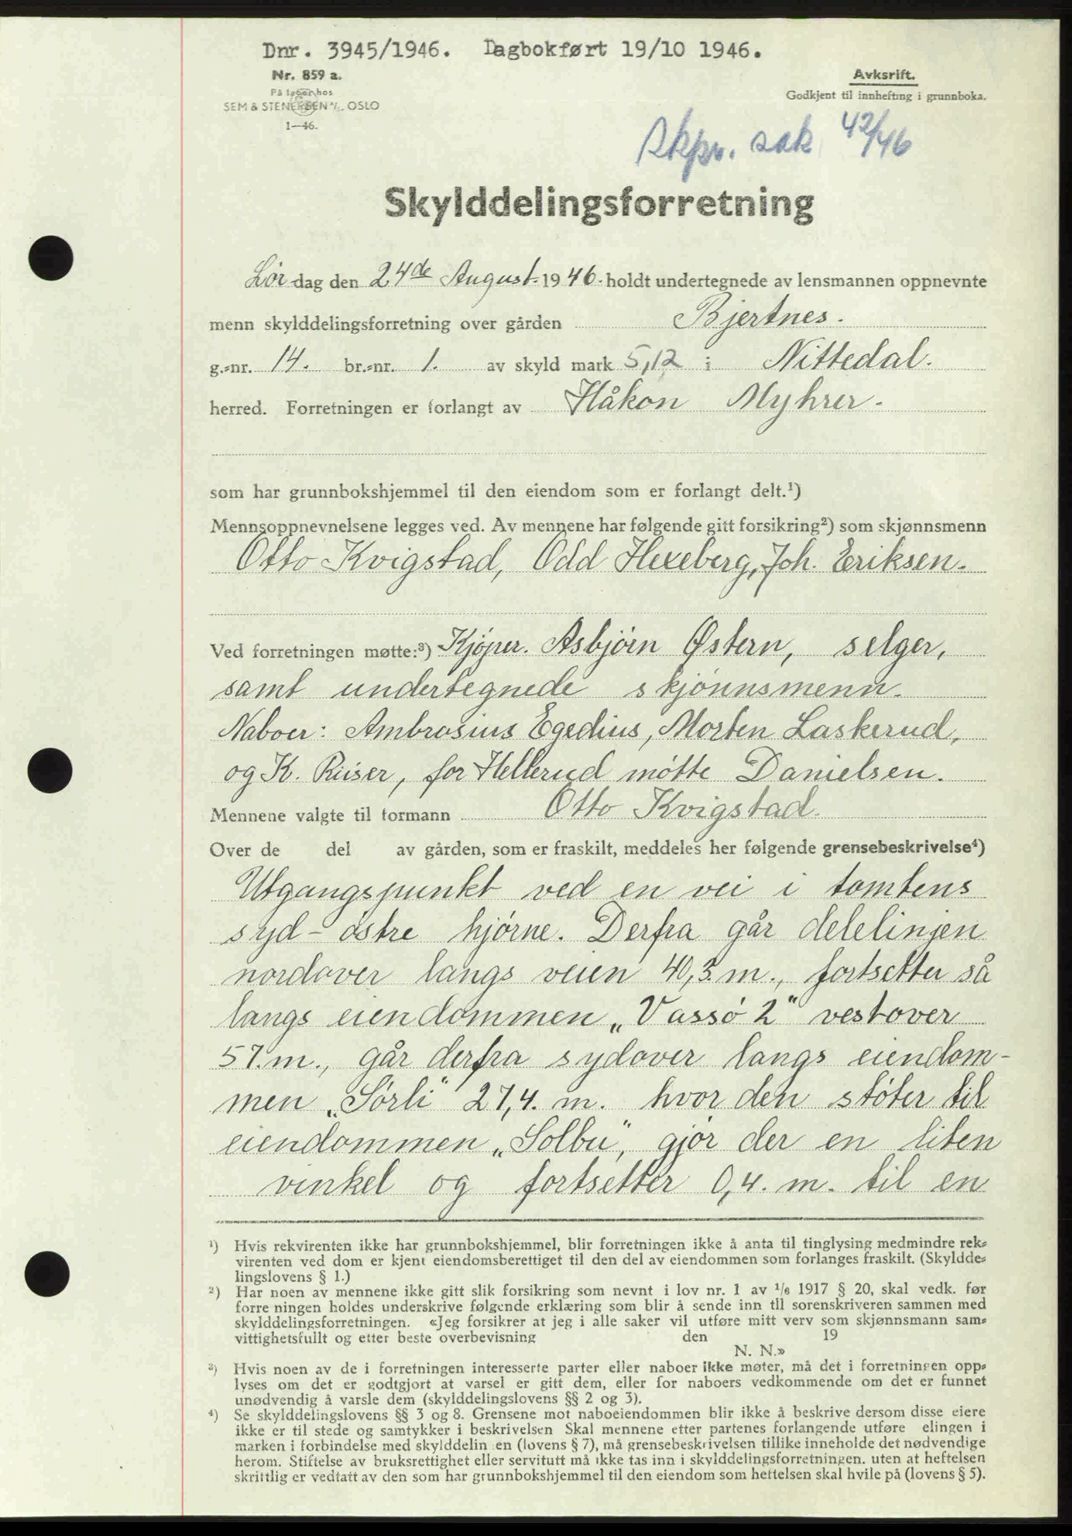 Dnr. 3945/1946. Dagbokført 19/10 1946.
Nr. 859 a.
På lager hos
SEM & STENERSEN A/S, OSLO
1—46.
Avksrift.
Godkjent til innhefting i grunnboka.
Skpr. sak 42/46
Skylddelingsforretning
Lør-dag den 24de August 1946. holdt undertegnede av lensmannen oppnevnte
menn skylddelingsforretning over gården Bjertnes.
g.-nr. 14. br.-nr. 1. av skyld mark 5,12 i Nittedal.
herred. Forretningen er forlangt av Håkon Myhrer.
som har grunnbokshjemmel til den eiendom som er forlangt delt.¹)
Mennsoppnevnelsene legges ved. Av mennene har følgende gitt forsikring²) som skjønnsmenn
Otto Kvigstad, Odd Hexeberg, Joh. Eriksen.
Ved forretningen møtte:³) Kjøper. Asbjörn Østern, selger,
samt undertegnede skjönnsmenn.
Naboer: Ambrosius Egedius, Morten Laskerud,
og K. Riiser, for Hellerud mötte Danielsen.
Mennene valgte til formann Otto Kvigstad.
Over de del av gården, som er fraskilt, meddeles her følgende grensebeskrivelse⁴)
Utgangspunkt ved en vei i tomtens
syd-östre hjörne. Derfra går delelinjen
nordover langs veien 40,3 m., fortsetter så
langs eiendommen „Vassö 2" vestover
57. m., går derfra sydover langs eiendom-
men „Sörli" 27,4. m. hvor den stöter til
eiendommen „Solbu", gjör der en liten
vinkel og fortsetter 0,4. m. til en
¹) Hvis rekvirenten ikke har grunnbokshjemmel, blir forretningen ikke å anta til tinglysing medmindre rek-
virenten ved dom er kjent eiendomsberettiget til den del av eiendommen som forlanges fraskilt. (Skyldde-
lingslovens § 1.)
²) Har noen av mennene ikke gitt slik forsikring som nevnt i lov nr. 1 av 1/6 1917 § 20, skal vedk. før
forre ningen holdes underskrive følgende erklæring som blir å sende inn til sorenskriveren sammen med
skylddelingsforretningen. «Jeg forsikrer at jeg i alle saker vil utføre mitt verv som skjønnsmann sam-
vittighetsfullt og etter beste overbevisning den 19
N. N.»
³) Hvis noen av de i forretningen interesserte parter eller naboer ikke møter, må det i forretningen opp-
lyses om det er godtgjort at varsel er gitt dem, eller for naboers vedkommende om det er funnet
unødvendig å varsle dem (skylddelingslovens §§ 2 og 3).
⁴) Se skylddelingslovens §§ 3 og 8. Grensene mot naboeiendommen blir ikke å beskrive dersom disse eiere
ikke er til stede og samtykker i beskrivelsen Skal mennene etter partenes forlangende utføre elingen i
marken i forbindelse med skylddelin en (lovens § 7), må grensebeskrivelsen tillike inneholde det nødvendige
herom. Stiftelse av bruksrettighet eller servitutt må ikke tas inn i skylddelingsforretningen. uten at heftelsen
skriftlig er vedtatt av den som har grunnbokshjemmel til den eiendom som heftelsen skal hvile på (lovens § 5).